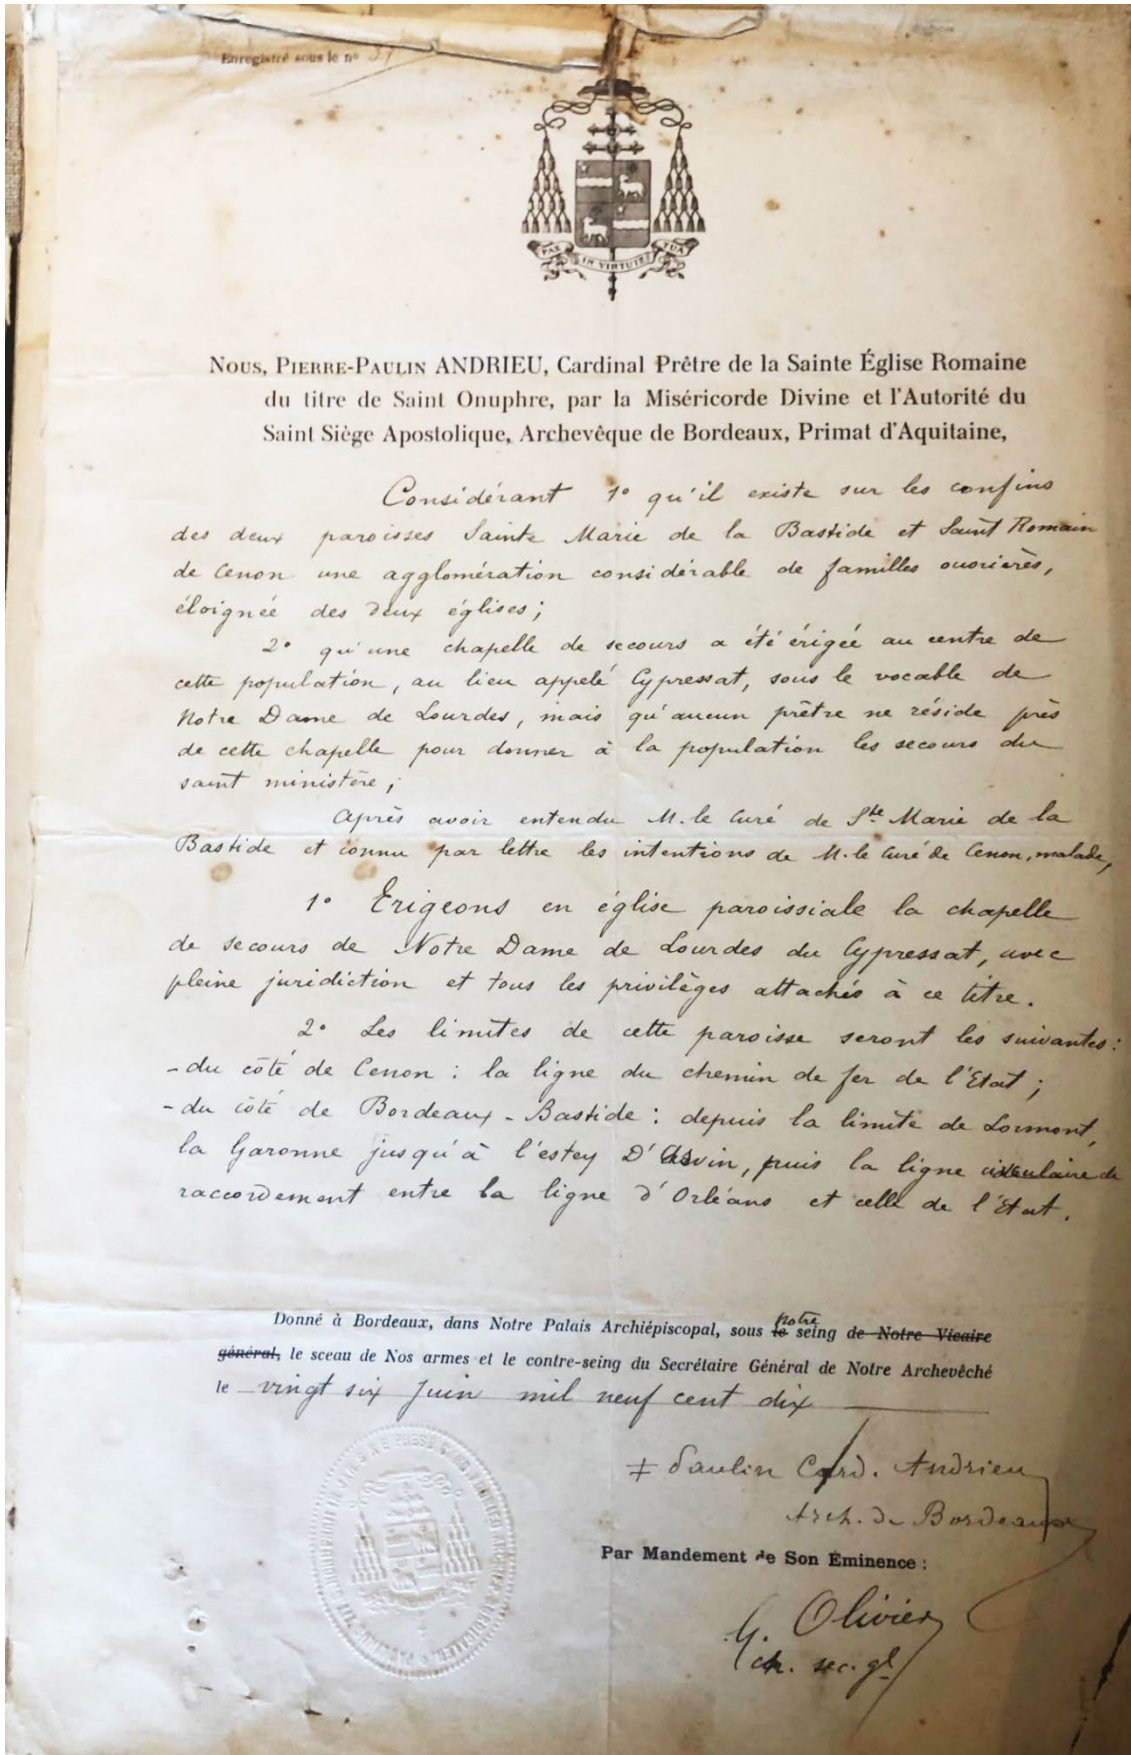 Enregistré sous le nº 37
PAX IN VIRTUTE TUA
NOUS, PIERRE-PAULIN ANDRIEU, Cardinal Prêtre de la Sainte Église Romaine
du titre de Saint Onuphre, par la Miséricorde Divine et l'Autorité du
Saint Siège Apostolique, Archevêque de Bordeaux, Primat d'Aquitaine,
Considérant 1º qu'il existe sur les confins
des deux paroisses Sainte Marie de la Bastide et Saint Romain
de Cenon une agglomération considérable de familles ouvrières,
éloignée des deux églises;
2º qu'une chapelle de secours a été érigée au centre de
cette population, au lieu appelé Cypressat, sous le vocable de
Notre Dame de Lourdes, mais qu'aucun prêtre ne réside près
de cette chapelle pour donner à la population les secours du
saint ministère;
Après avoir entendu M. le Curé de Ste Marie de la
Bastide et connu par lettre les intentions de M. le Curé de Cenon, malade,
1º Erigeons en église paroissiale la chapelle
de secours de Notre Dame de Lourdes du Cypressat, avec
pleine juridiction et tous les privilèges attachés à ce titre.
2º Les limites de cette paroisse seront les suivantes:
- du côté de Cenon : la ligne du chemin de fer de l'Etat;
- du côté de Bordeaux-Bastide : depuis la limite de Lormont,
la Garonne jusqu'à l'estey D', puis la ligne circulaire de
raccordement entre la ligne d'Orléans et celle de l'Etat.
Donné à Bordeaux, dans Notre Palais Archiépiscopal, sous le notre seing de Notre Vicaire
général, le sceau de Nos armes et le contre-seing du Secrétaire Général de Notre Archevêché
le vingt six Juin mil neuf cent dix
‡ Paulin Card. Andrieu
Arch. de Bordeaux
Par Mandement de Son Éminence :
G. Olivier
ch. sec. gl